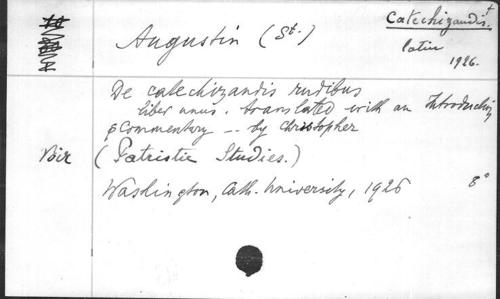 Catechizandis. †
Augustin (St.)
latin
1926.
De catechizandis rudibus
liber unus. translated with an Introduction
& Commentary -- by Christopher
Bir (Patristic Studies.)
Washington, Cath. University, 1926 8°